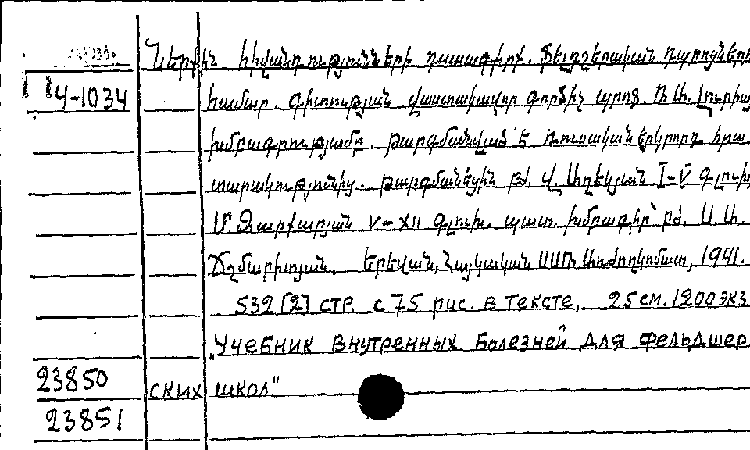 Ներքին հիվանդությունների դասագիրք. Ֆելդշերական դպրոցների
14-1034 համար. գիտության վաստակավոր գործիչ պրոֆ. Ռ. Ա. Լուրիայի
խմբագրությամբ. թարգմանված է ռուսական երկրորդ հրա
տարակությունից. թարգմանեցին բժ. Վ. Աղեկյան I-V գլուխ.
Մ. Զարխարյան V-XII գլուխ. պատ. խմբագիր՝ բժ. Ա. Ա.
Ճշմարիտյան. Երեվան, Հայկական ՍՍՌ Առժողկոմատ, 1941.
539 [2] стр. с 75 рис. в тексте, 25 см. 1200 экз.
"Учебник внутренних болезней для фельдшер
23850 ских школ"
23851